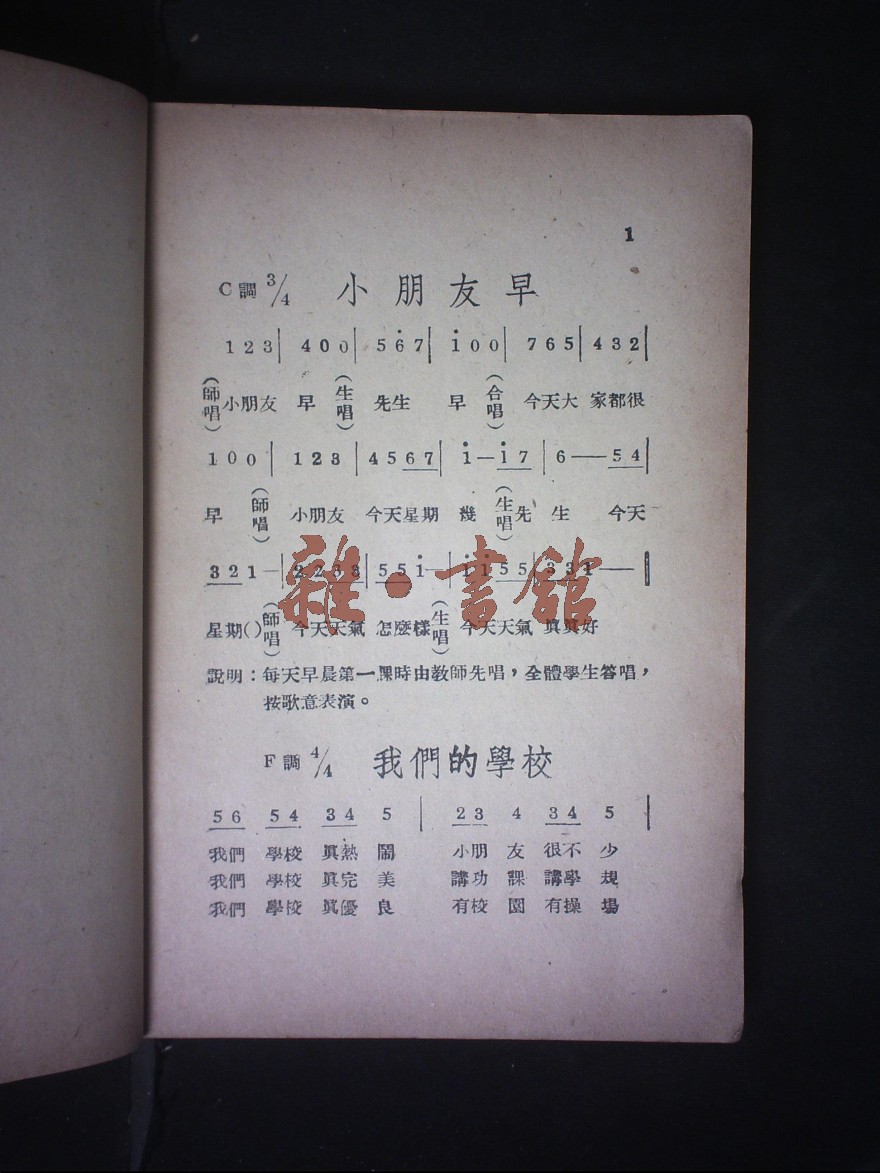 1
C調 3/4 小朋友早
1 2 3 | 4 0 0 | 5 6̇ 7 | 1̇ 0 0 | 7 6 5 | 4 3 2 |
(師唱)小朋友 早 (生唱) 先生 早 (合唱) 今天大 家都很
1 0 0 | 1 2 3 | 4 5 6 7 | 1̇ — 1̇ 7 | 6 — — 5 4 |
早 (師唱) 小朋友 今天星期 幾 (生唱) 先 生 今天
3 2 1 — | 2 2 3 3 | 5 5 1̇ — | 1̇ 1̇ 5 5 | 3 3 1 — — |
星期( ) (師唱) 今天天氣 怎麽樣 (生唱) 今天天氣 眞眞好
雜·書館
說明：每天早晨第一課時由教師先唱，全體學生答唱，
按歌意表演。
F調 4/4 我們的學校
5 6 5 4 3 4 5 | 2 3 4 3 4 5 |
我們 學校 眞熱 鬧 小朋 友 很不 少
我們 學校 眞完 美 講功 課 講學 規
我們 學校 眞優 良 有校 園 有操 場